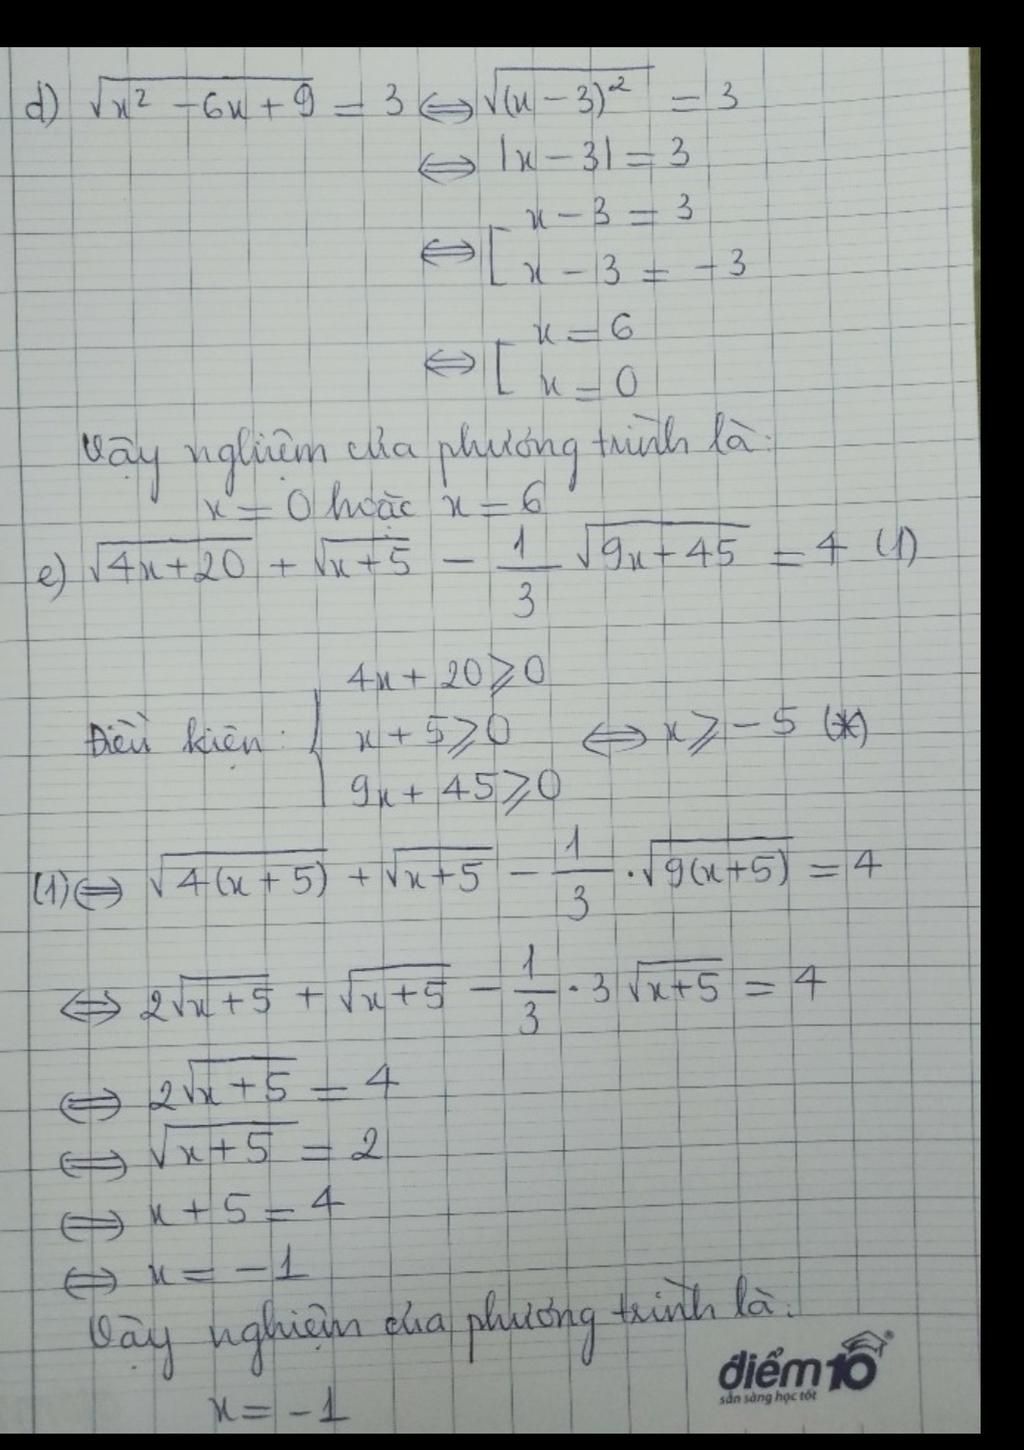 d) √(x² - 6x + 9) = 3 ⇔ √((x - 3)²) = 3
⇔ |x - 3| = 3
⇔ [ x - 3 = 3
x - 3 = -3
⇔ [ x = 6
x = 0
Vậy nghiệm của phương trình là:
x = 0 hoặc x = 6
e) √(4x+20) + √(x+5) - 1/3 √(9x+45) = 4 (1)
4x + 20 ⩾ 0
Điều kiện: { x + 5 ⩾ 0 ⇔ x ⩾ -5 (*)
9x + 45 ⩾ 0
(1) ⇔ √(4(x+5)) + √(x+5) - 1/3 . √(9(x+5)) = 4
⇔ 2√(x+5) + √(x+5) - 1/3 . 3√(x+5) = 4
⇔ 2√(x+5) = 4
⇔ √(x+5) = 2
⇔ x + 5 = 4
⇔ x = -1
Vậy nghiệm của phương trình là:
x = -1
điểm10
sẵn sàng học tốt